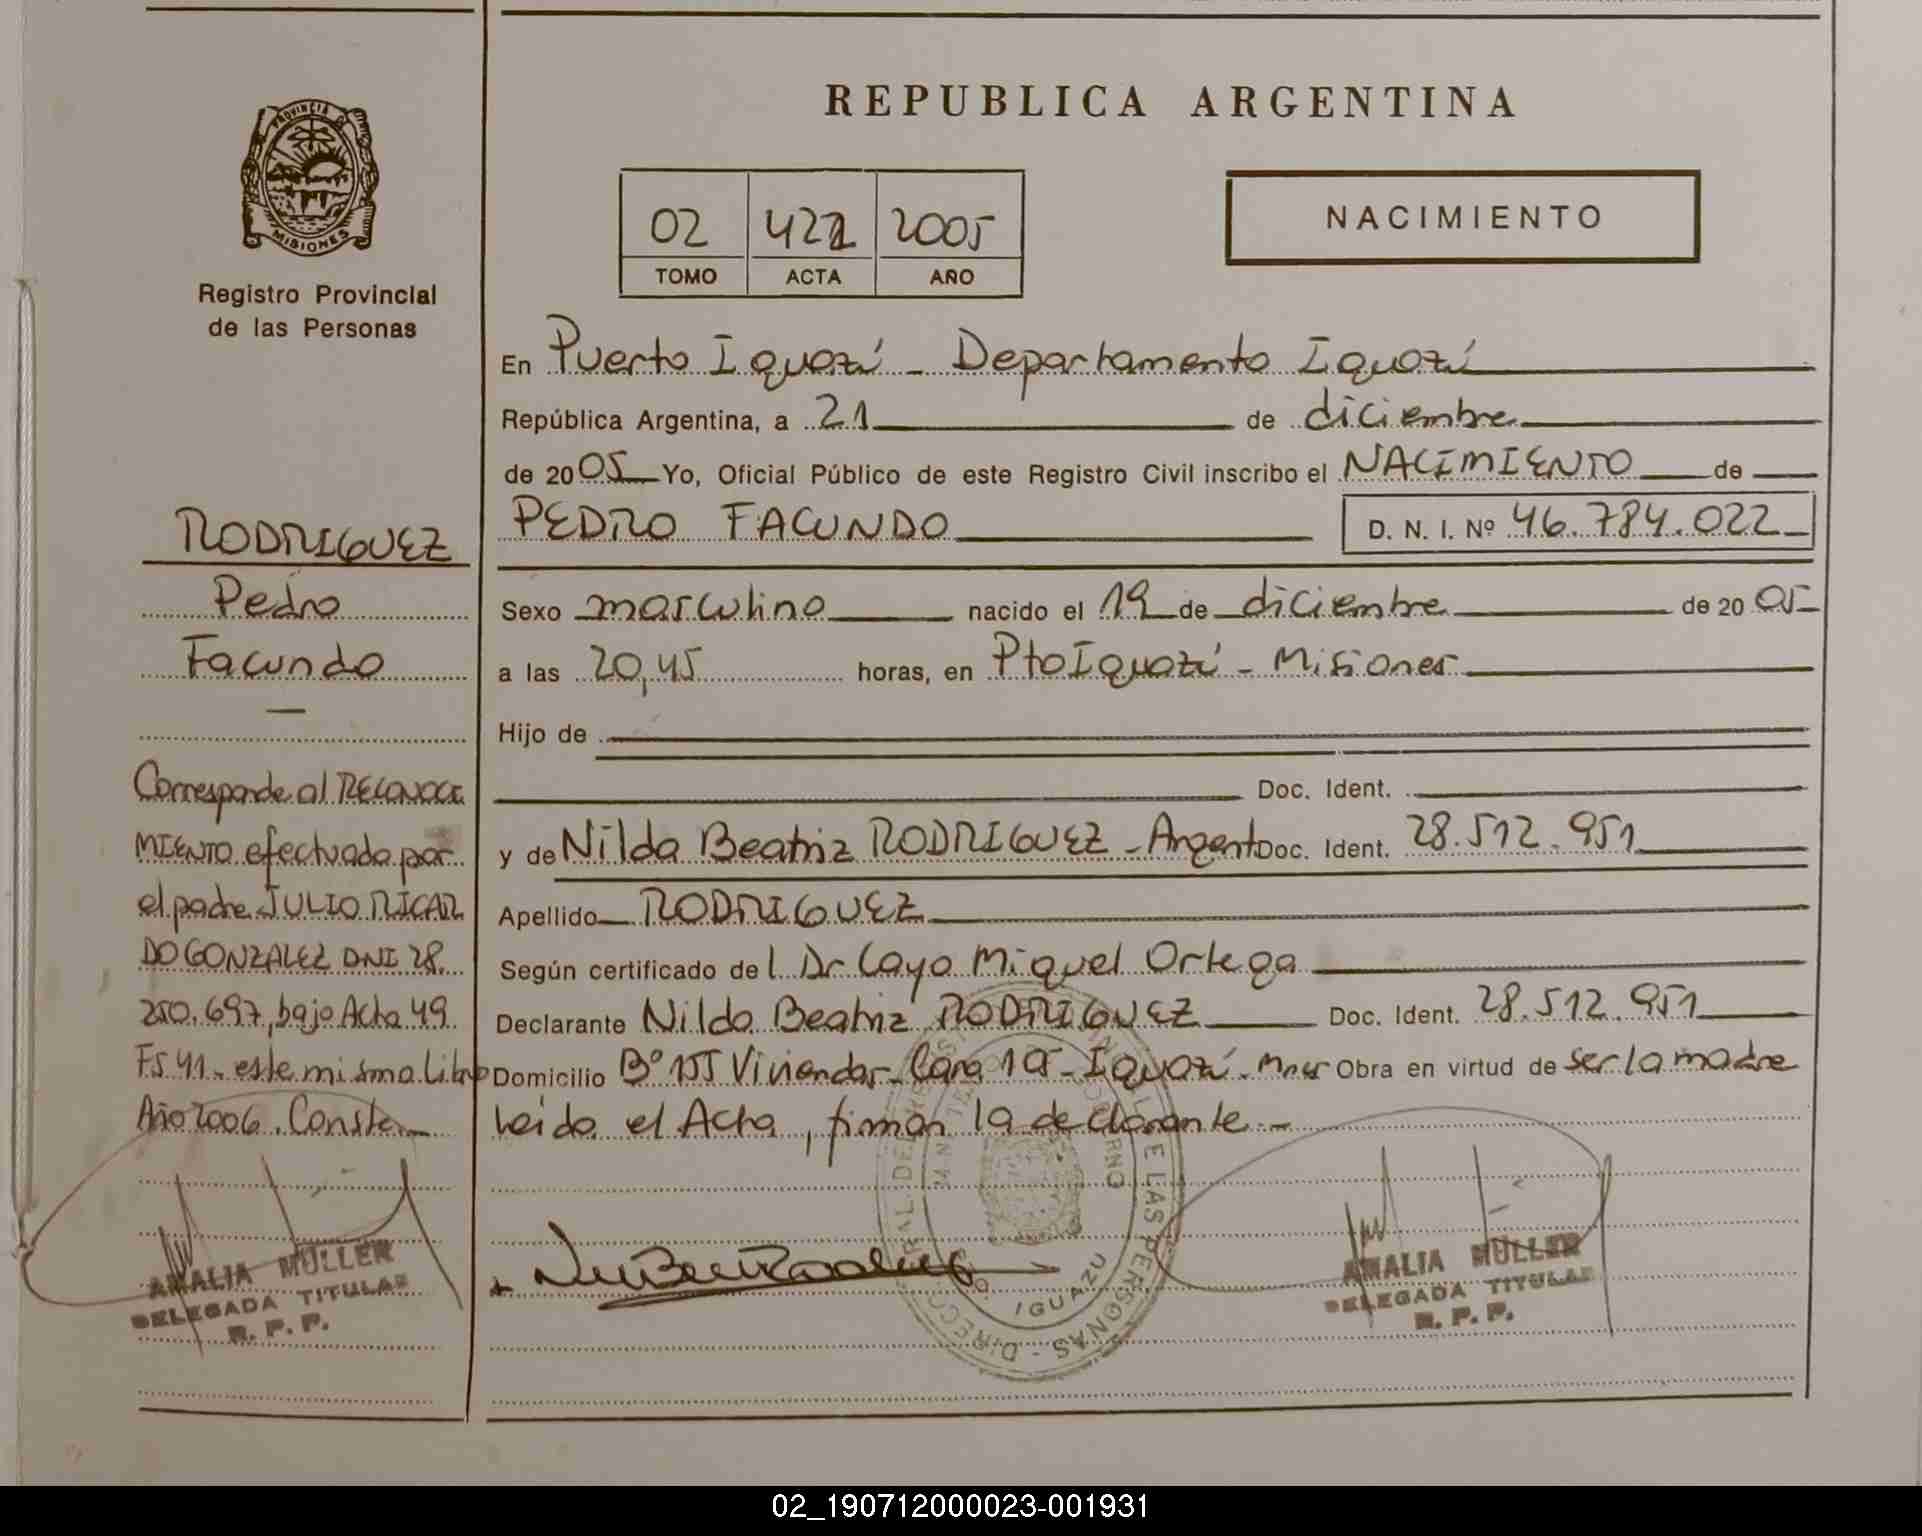 REPUBLICA ARGENTINA
PROVINCIA D
MISIONES
Registro Provincial
de las Personas
02 422 2005
TOMO ACTA AÑO
NACIMIENTO
En Puerto Iguazú - Departamento Iguazú
República Argentina, a 21 de diciembre
de 2005 Yo, Oficial Público de este Registro Civil inscribo el NACIMIENTO de
PEDRO FACUNDO D. N. I. Nº 46.784.022
Sexo masculino nacido el 19 de diciembre de 2005
a las 20,45 horas, en Pto Iguazú - Misiones
Hijo de
Doc. Ident.
y de Nilda Beatriz RODRIGUEZ - Argent Doc. Ident. 28.512.951
Apellido RODRIGUEZ
Según certificado del Dr Cayo Miguel Ortega
Declarante Nilda Beatriz RODRIGUEZ Doc. Ident. 28.512.951
Domicilio Bº 155 Viviendas - Casa 105 - Iguazú - Mnes Obra en virtud de ser la madre
Leida el Acta, firman la declarante -
RODRIGUEZ
Pedro
Facundo
Corresponde al RECONOCI
MIENTO efectuado por
el padre JULIO RICAR
DO GONZALEZ DNI 28.
250.697, bajo Acta 49
FS 41 - este mismo Libro
Año 2006. Conste -
AMALIA MULLER
DELEGADA TITULAR
R. P. P.
IGUAZU
DE LAS PERSONAS - DIRECC
AMALIA MULLER
DELEGADA TITULAR
R. P. P.
02_190712000023-001931